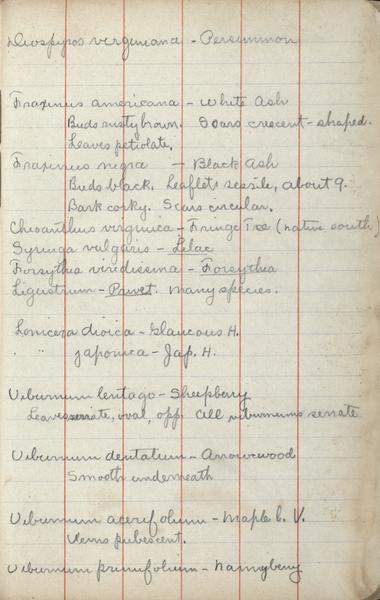 Diospyros virginiana - Persimmon
Fraxinus americana - White Ash
Buds rusty brown. Scars crescent-shaped.
Leaves petiolate.
Fraxinus negra - Black Ash
Buds black. Leaflets sessile, about 9.
Bark corky. Scars circular.
Chioanthus virginica - Fringe Tree (native south)
Syringa vulgaris - Lilac
Forsythia viridissima - Forsythia
Ligustrum - Privet. Many species.
Lonicera dioica - Glaucous H.
" " japonica - Jap. H.
Viburnum lentago - Sheepberry
Leaves serrate, oval, opp. All viburnums serrate
Viburnum dentatum - Arrowwood
Smooth underneath
Viburnum acerifolium - Maple l. V.
Veins pubescent.
Viburnum prunifolium - Nannyberry